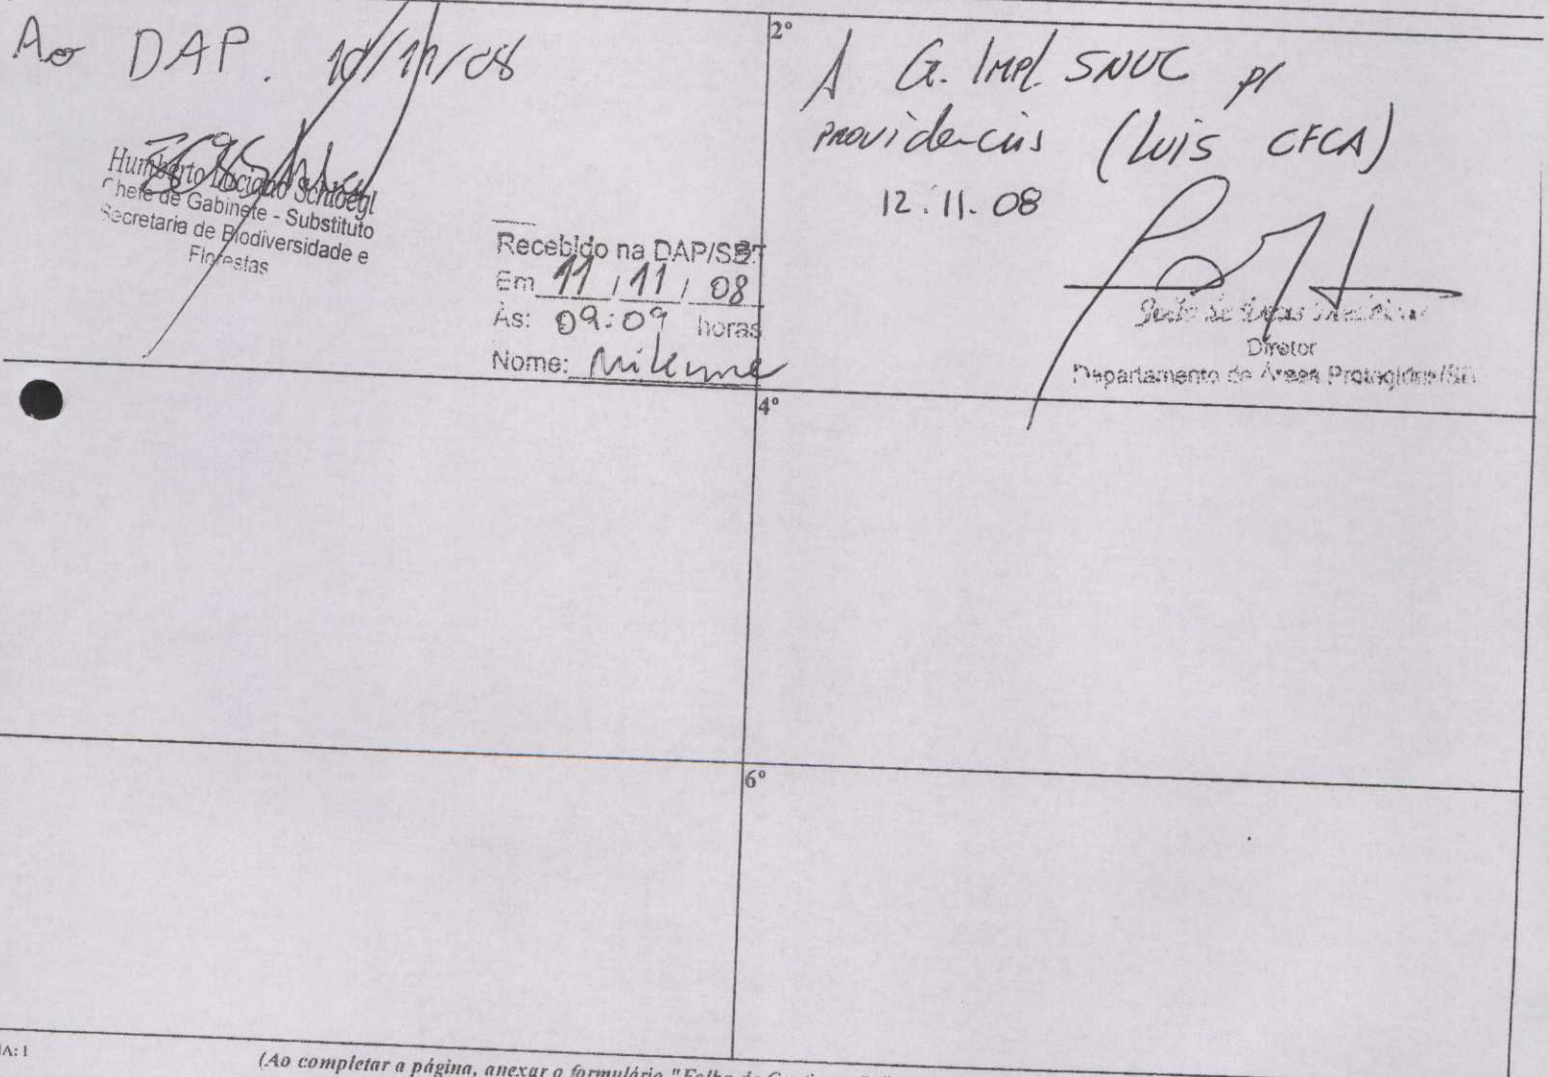 Ao DAP. 10/11/08
Humberto Schloegl
Chefe de Gabinete - Substituto
Secretaria de Biodiversidade e
Florestas
Recebido na DAP/SBF
Em 11 / 11 / 08
Às: 09:09 horas
Nome:
2º
A G. Impl. SNUC p/
providencias (Luis CFCA)
12.11.08
Diretor
Departamento de Áreas Protegidas/SBF
4º
6º
(Ao completar a página, anexar o formulário "Folha de